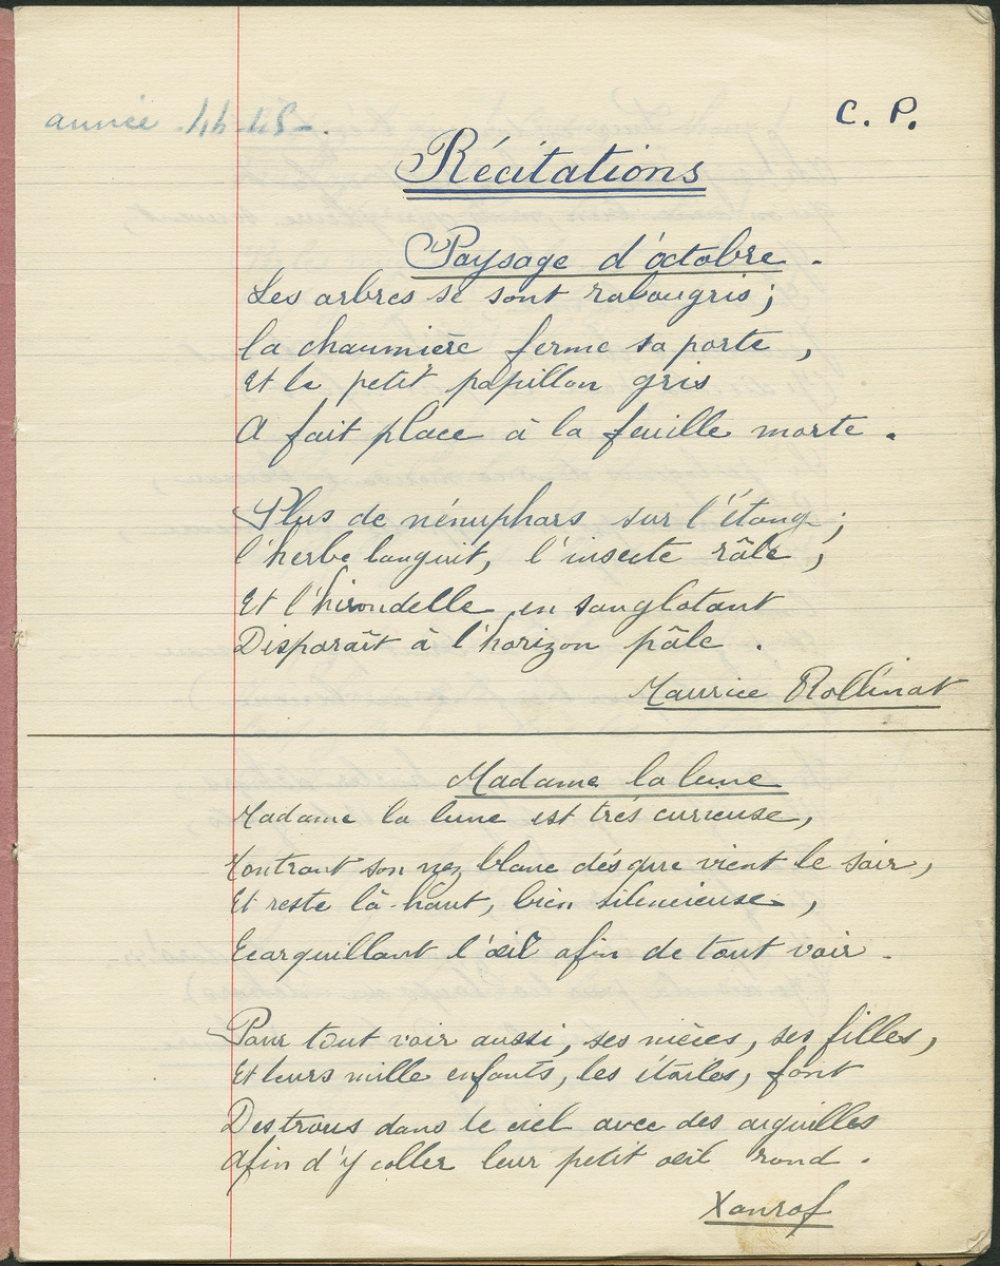 année 44-45-.
C. P.
Récitations
Paysage d'octobre.
Les arbres se sont rabougris ;
la chaumière ferme sa porte,
Et le petit papillon gris
A fait place à la feuille morte.
Plus de nénuphars sur l'étang ;
l'herbe languit, l'insecte râle,
Et l'hirondelle en sanglotant
Disparaît à l'horizon pâle.
Maurice Rollinat
Madame la lune
Madame la lune est très curieuse,
Montrant son nez blanc dès que vient le soir,
Et reste là-haut, bien silencieuse,
Ecarquillant l'œil afin de tout voir.
Pour tout voir aussi, ses nièces, ses filles,
Et leurs mille enfants, les étoiles, font
Des trous dans le ciel avec des aiguilles
Afin d'y coller leur petit œil rond.
Xanrof